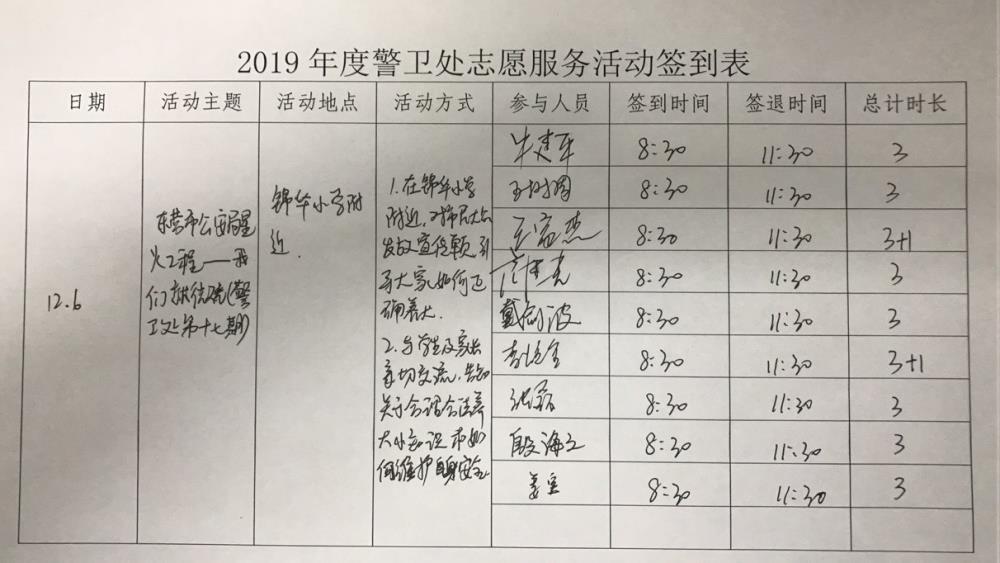 2019 年度警卫处志愿服务活动签到表
日期 活动主题 活动地点 活动方式 参与人员 签到时间 签退时间 总计时长
12.6
东营市公安局星
火工程——我
们在行动(警
卫处第十七期)
锦华小学附
近.
1.在锦华小学
附近,
发放宣传单,引
导大家如何正
确养犬.
2.与学生及家长
亲切交流,告知
关于合理合法养
犬小知识和如
何维护自身安全
牛建军 8:30 11:30 3
8:30 11:30 3
8:30 11:30 3+1
8:30 11:30 3
戴 波 8:30 11:30 3
8:30 11:30 3+1
张磊 8:30 11:30 3
殷海 8:30 11:30 3
姜 8:30 11:30 3